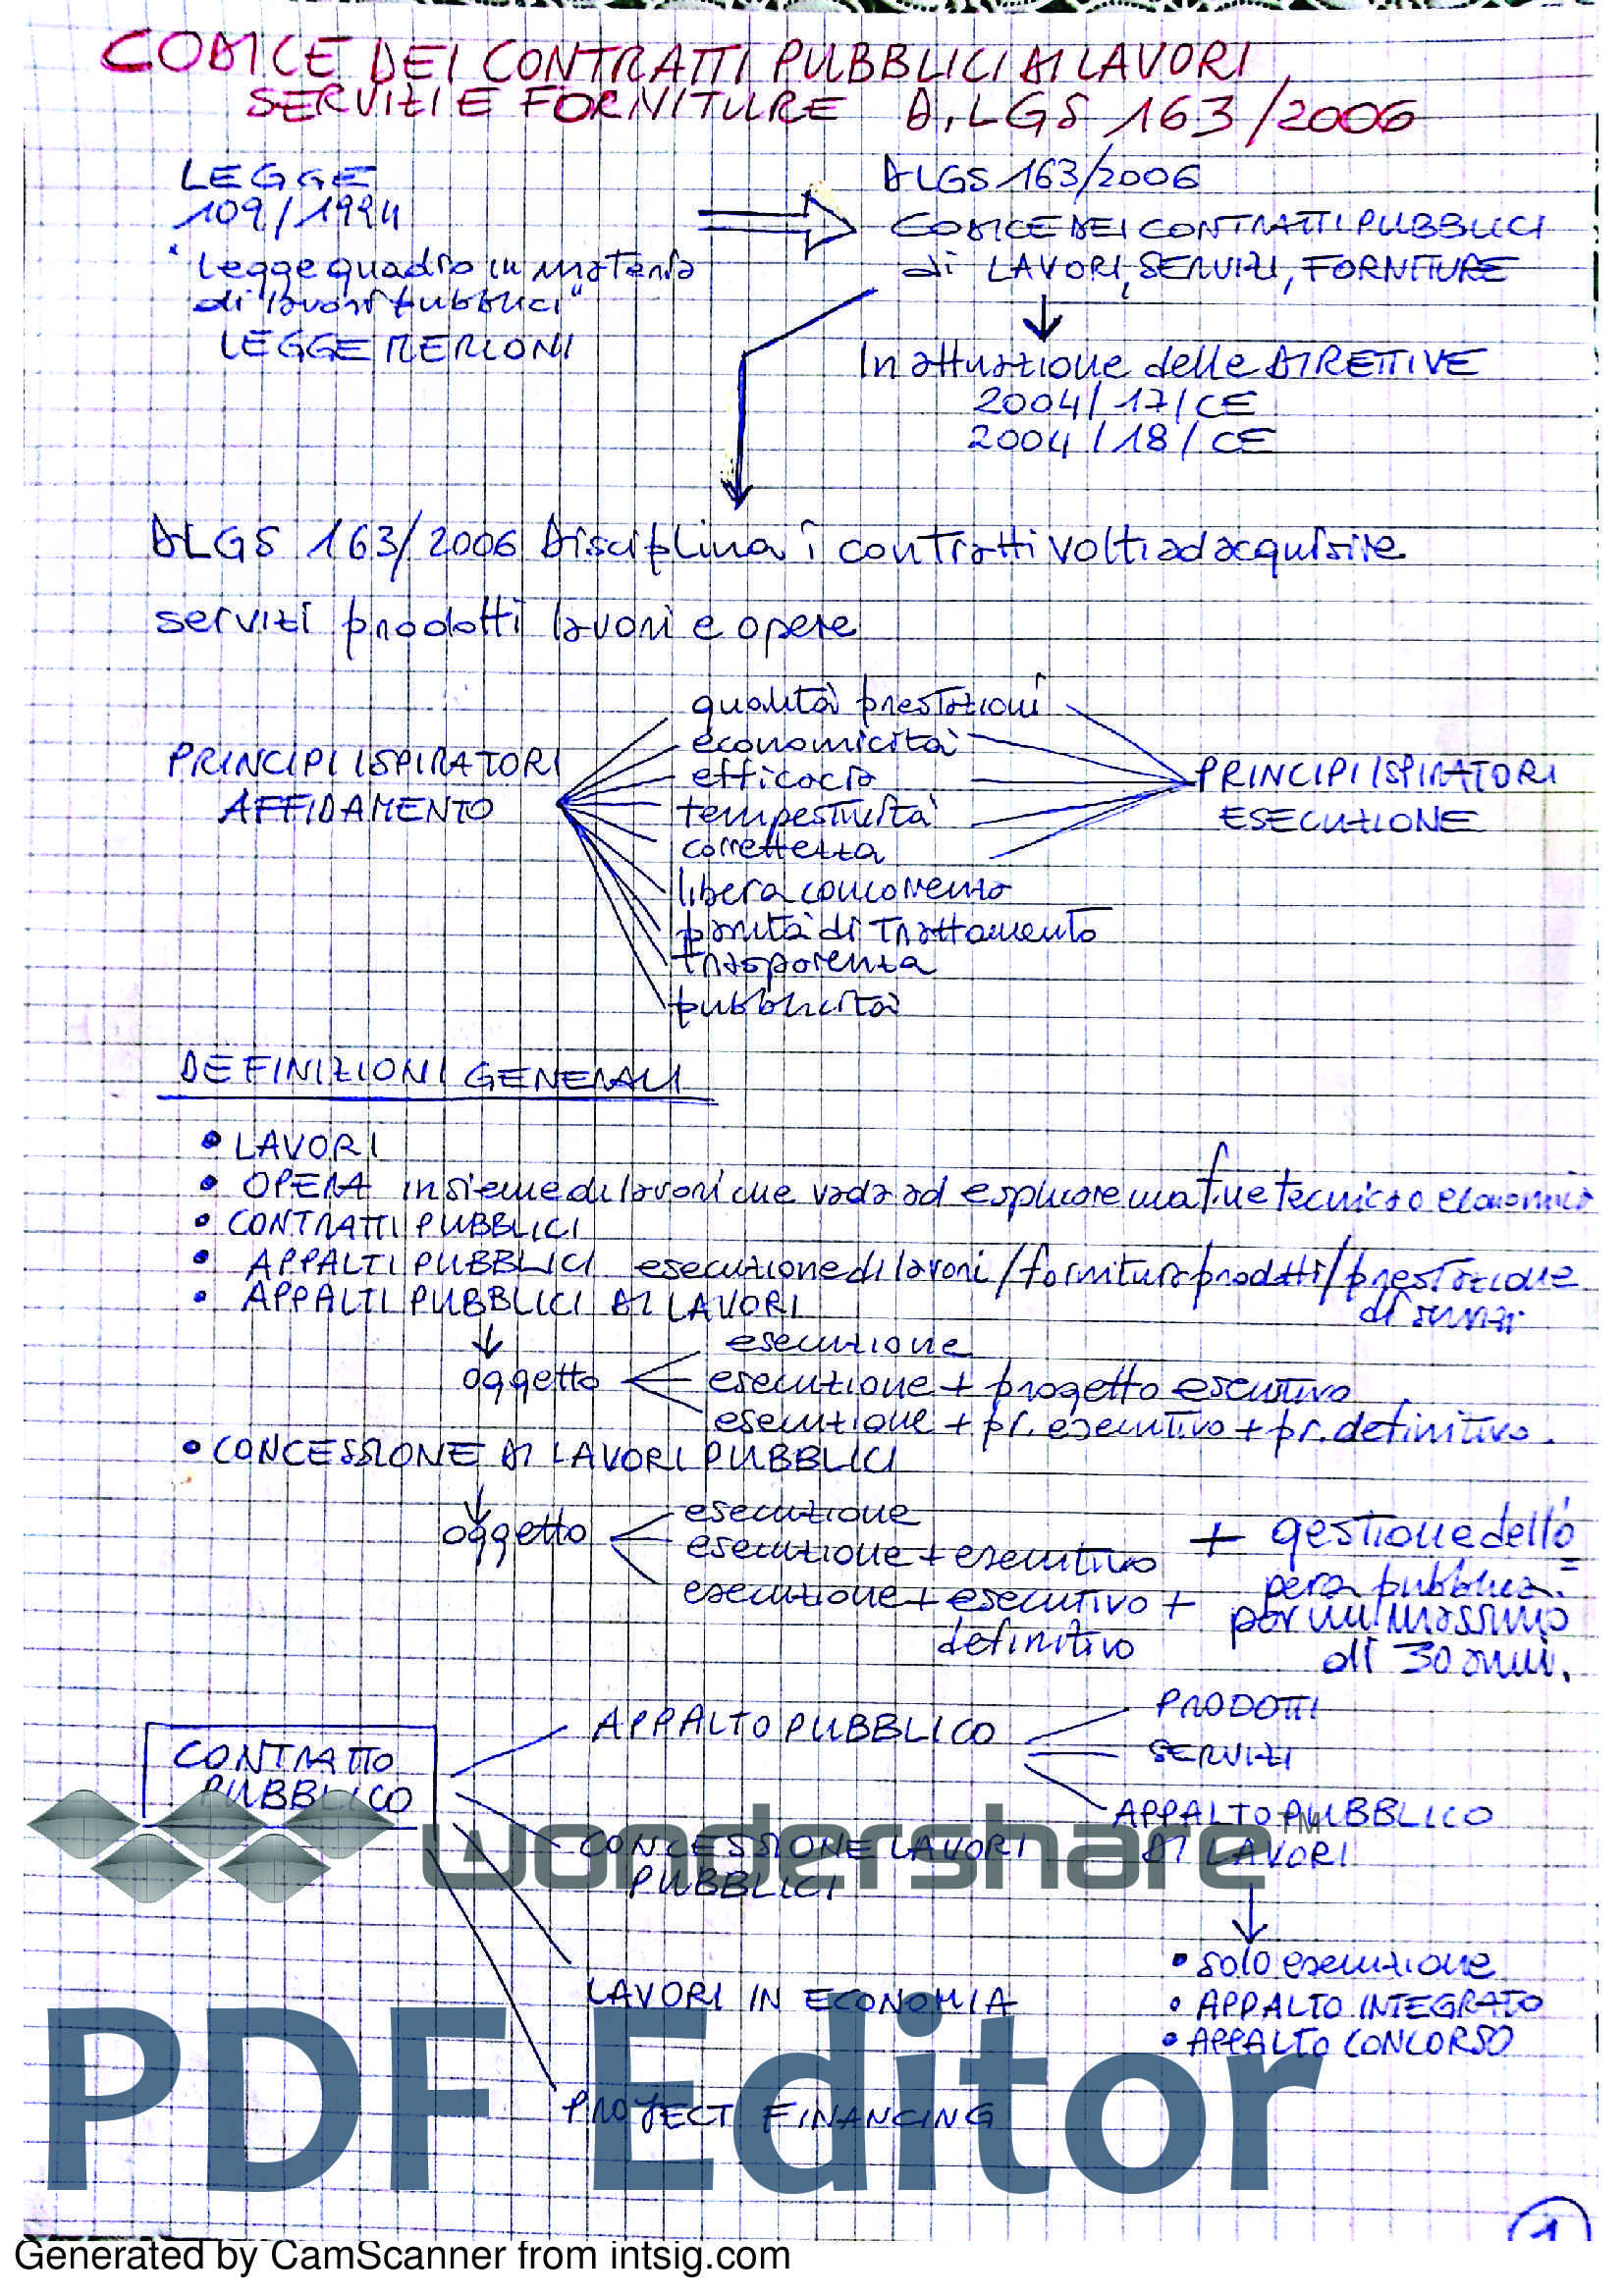 CODICE DEI CONTRATTI PUBBLICI DI LAVORI,
SERVIZI E FORNITURE D.LGS 163/2006
LEGGE
109/1994
"Legge quadro in materia
di lavori pubblici"
LEGGE MERLONI
DLGS 163/2006
CODICE DEI CONTRATTI PUBBLICI
di LAVORI, SERVIZI, FORNITURE
In attuazione delle DIRETTIVE
2004/17/CE
2004/18/CE
DLGS 163/2006 Disciplina i contratti volti ad acquisire
servizi prodotti lavori e opere
PRINCIPI ISPIRATORI
AFFIDAMENTO
qualità prestazioni
economicità
efficacia
tempestività
correttezza
libera concorrenza
parità di trattamento
trasparenza
pubblicità
PRINCIPI ISPIRATORI
ESECUZIONE
DEFINIZIONI GENERALI
• LAVORI
• OPERA insieme di lavori che vada ad esplicare una fine tecnica o economica
• CONTRATTI PUBBLICI
• APPALTI PUBBLICI esecuzione di lavori/fornitura prodotti/prestazione
di servizi
• APPALTI PUBBLICI DI LAVORI
oggetto
esecuzione
esecuzione + progetto esecutivo
esecuzione + pr. esecutivo + pr. definitivo.
• CONCESSIONE DI LAVORI PUBBLICI
oggetto
esecuzione
esecuzione + esecutivo
esecuzione + esecutivo +
definitivo
+ gestione dell'o
pera pubblica.=
per un massimo
di 30 anni.
CONTRATTO
PUBBLICO
APPALTO PUBBLICO
PRODOTTI
SERVIZI
APPALTO PUBBLICO
DI LAVORI
• solo esecuzione
• APPALTO INTEGRATO
• APPALTO CONCORSO
CONCESSIONE LAVORI
PUBBLICI
LAVORI IN ECONOMIA
PROJECT FINANCING
wondershare™
PDF Editor
1
Generated by CamScanner from intsig.com